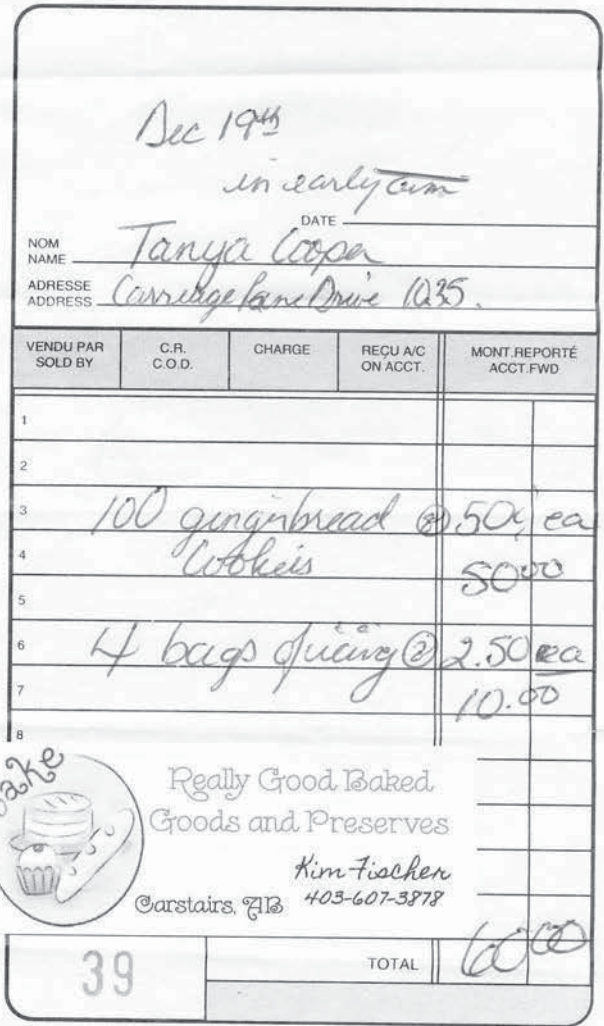 Dec 19th
in early am
DATE
NOM
NAME Tanya Cooper
ADRESSE
ADDRESS Carriage Lane Drive 1035.
VENDU PAR
SOLD BY
C.R.
C.O.D.
CHARGE
REÇU A/C
ON ACCT.
MONT.REPORTÉ
ACCT.FWD
1
2
3 100 gingerbread @ 50¢ ea
4 Cookies 50 00
5
6 4 bags of icing @ 2.50 ea
7 10.00
8
Bake
Really Good Baked
Goods and Preserves
Kim Fischer
Carstairs, AB 403-607-3878
39 TOTAL 60 00